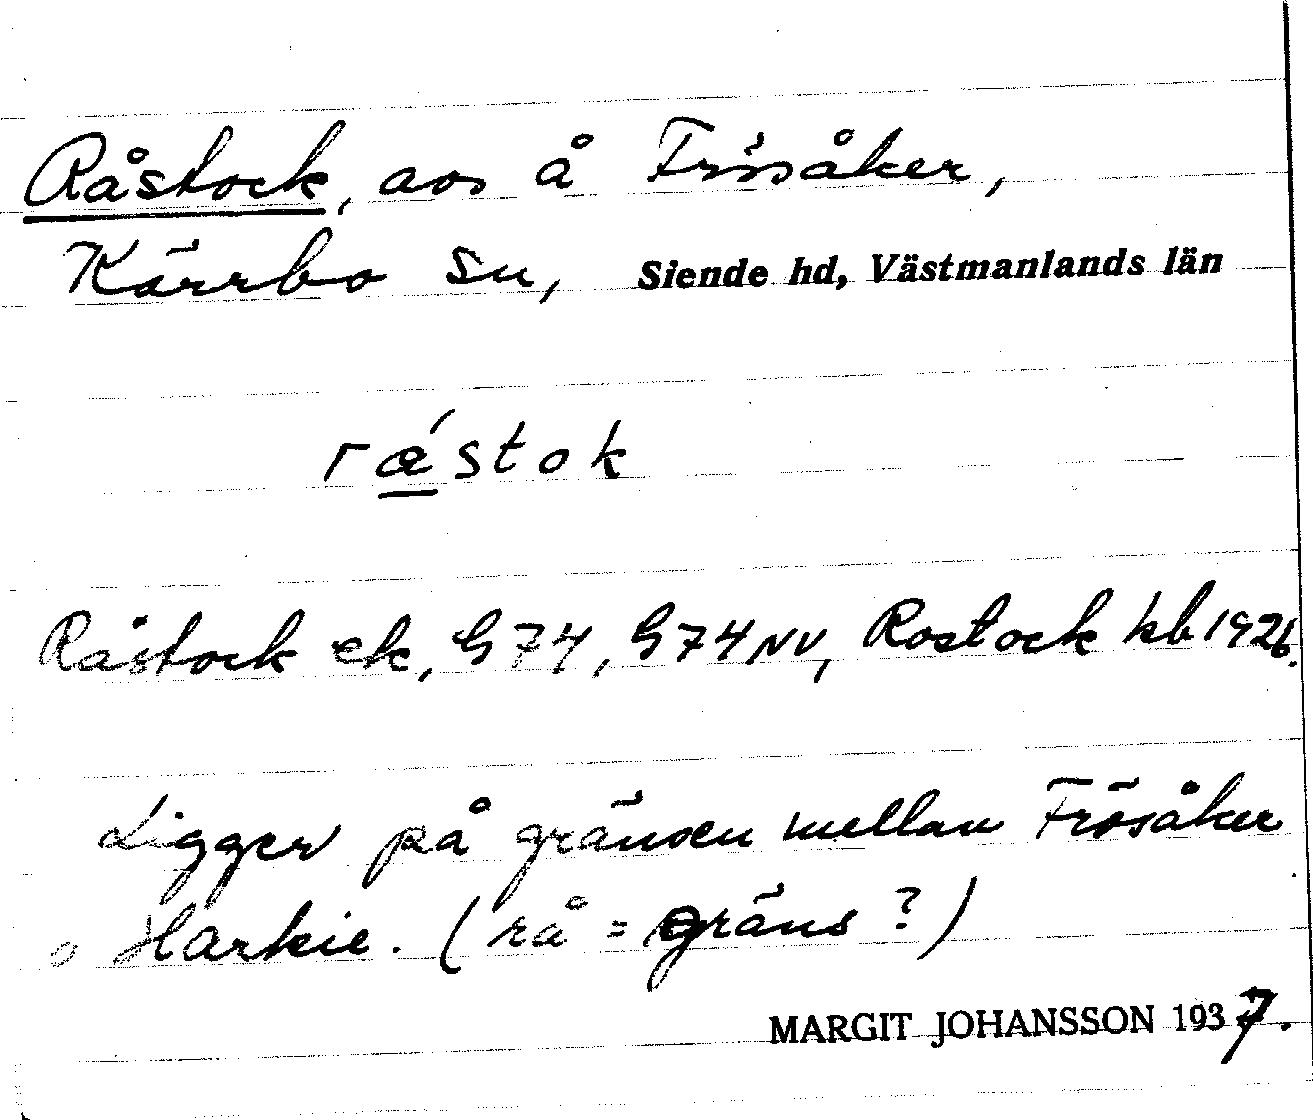 Råstock, avs å Frösåker,
Kärrbo sn, Siende hd, Västmanlands län
rǽstok
Råstock ek, G74, G74NV, Rostock kb 1926.
Ligger på gränsen mellan Frösåker
o Harkie. (rå = gräns?)
MARGIT JOHANSSON 1937.